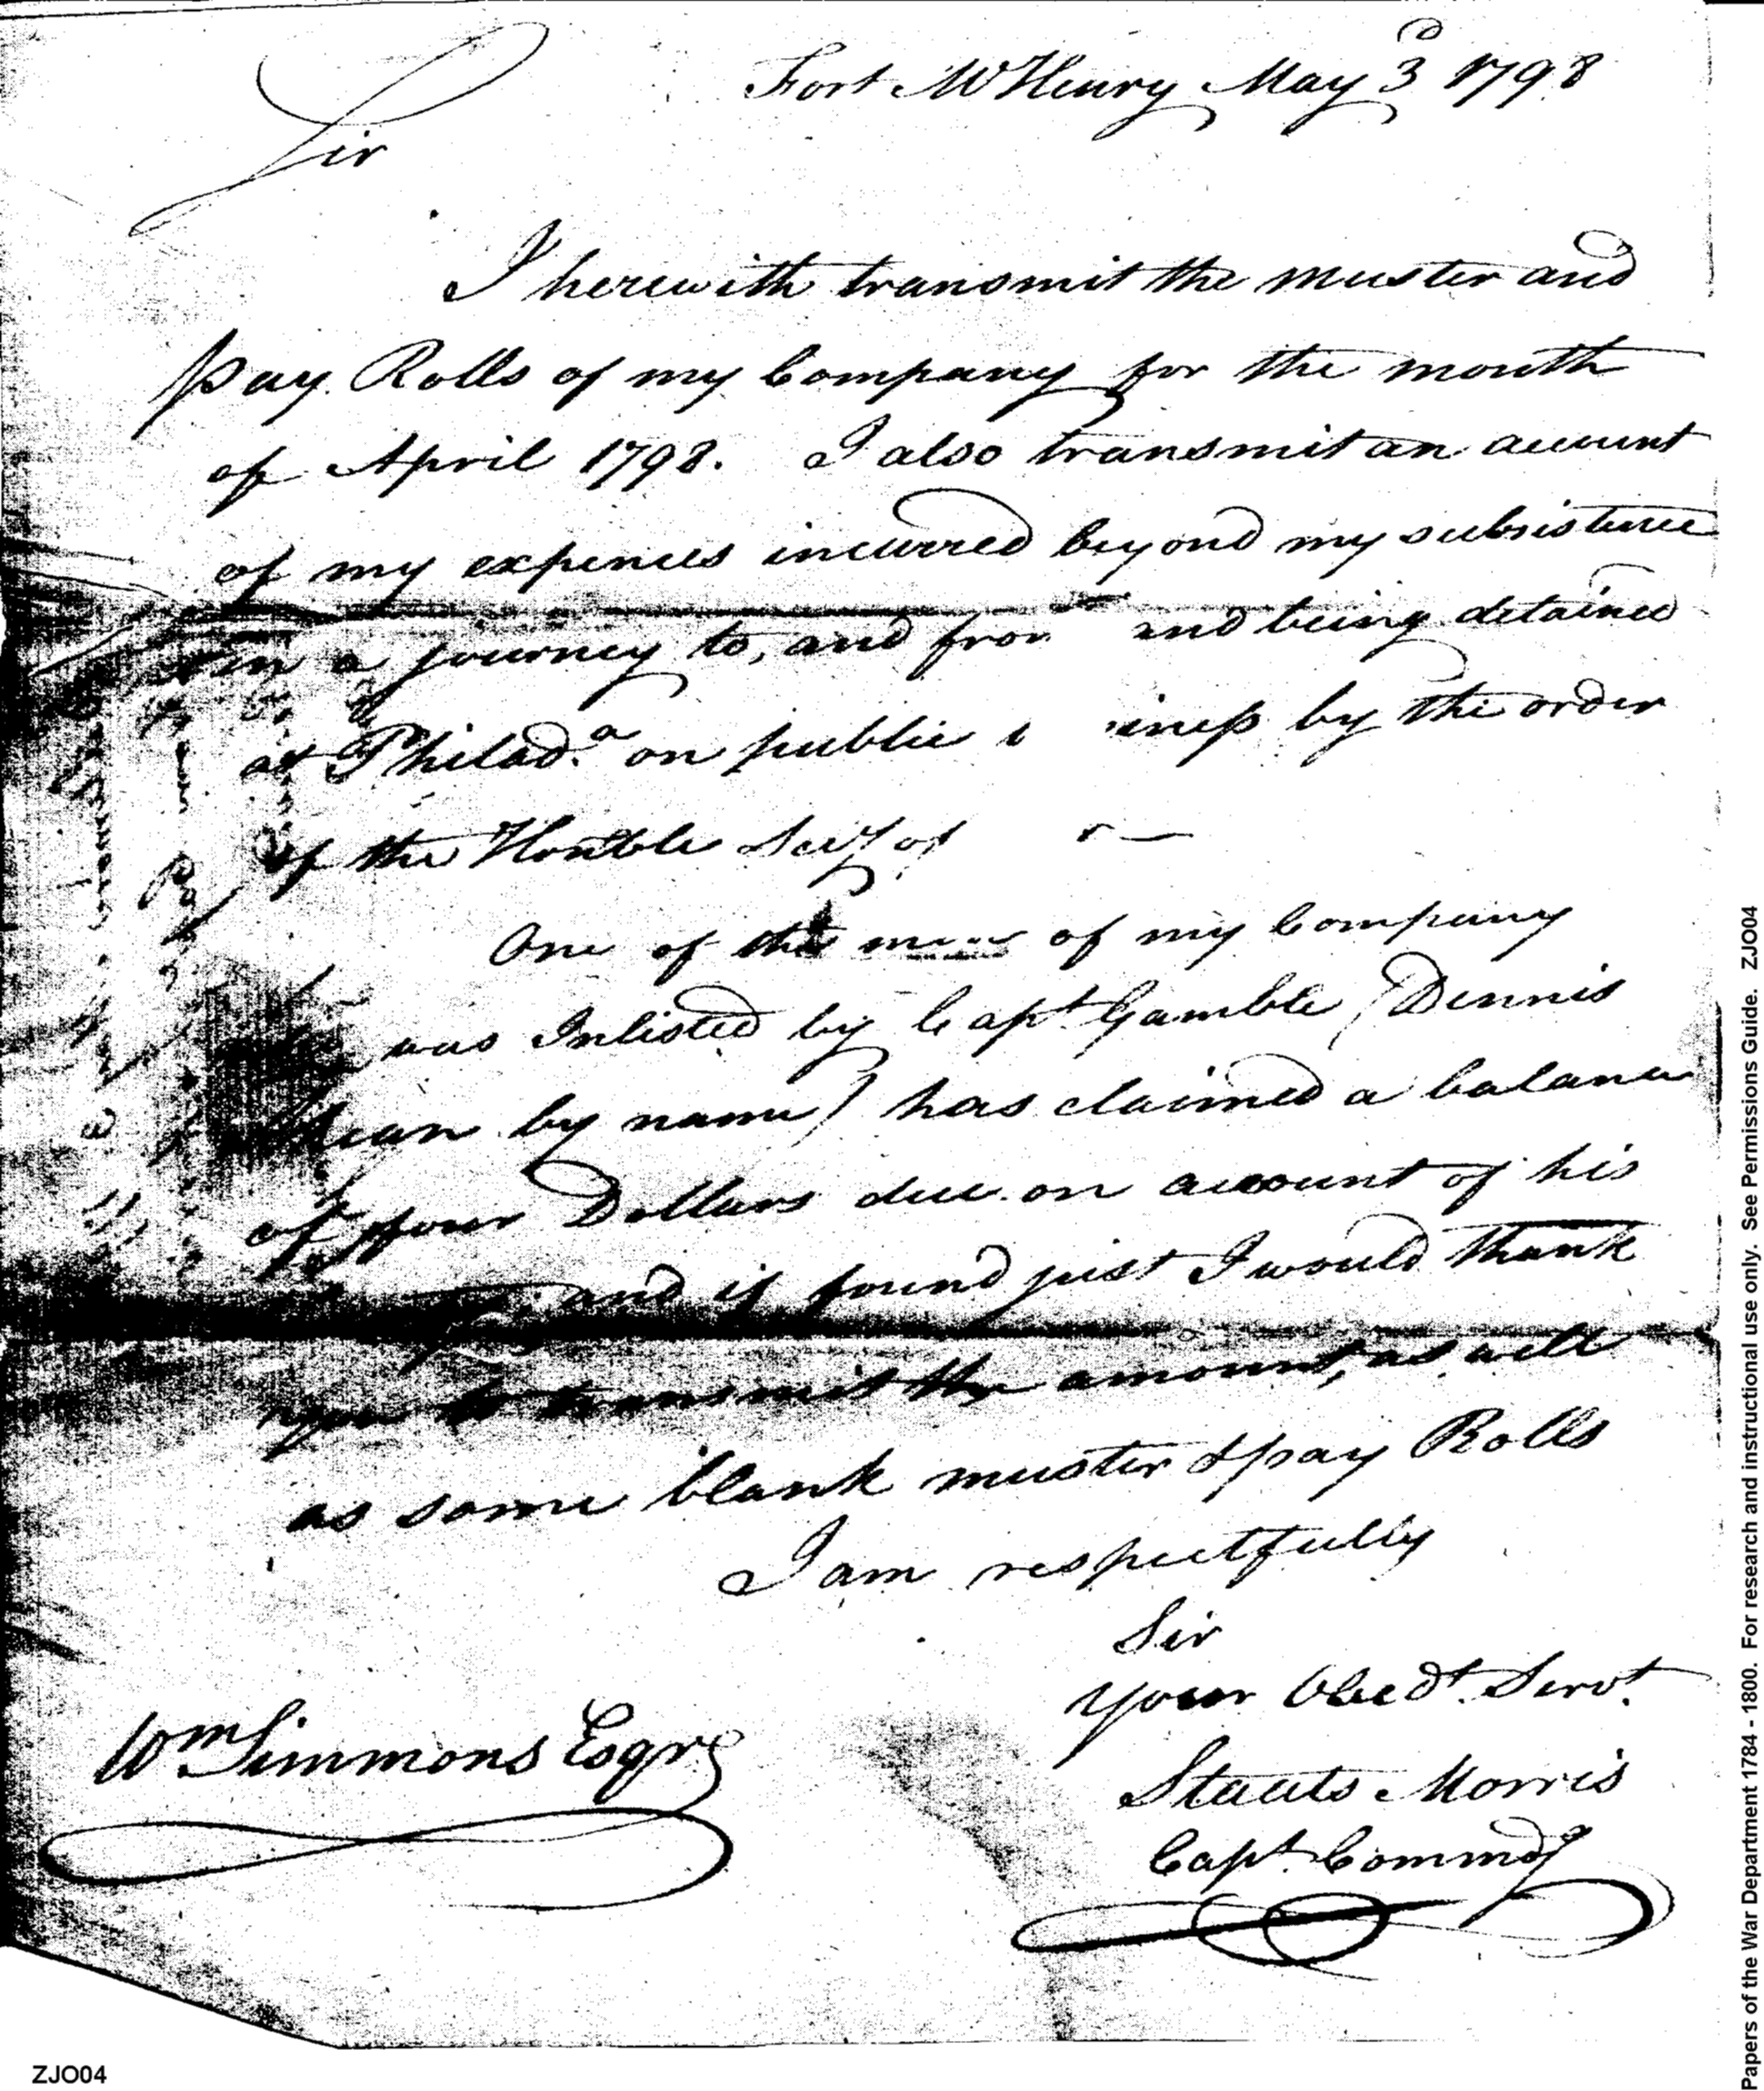 Fort McHenry May 3d 1798
Sir
I herewith transmit the muster and
pay Rolls of my Company for the month
of April 1798. I also transmit an account
of my expences incurred beyond my subsistence
in a journey to, and from and being detained
at Philada. on public by the order
of the Honble Secy of
One of the men of my Company
was Inlisted by Capt. Gamble (Dennis
by name) has claimed a balance
of four Dollars due on account of his
and if found just I would thank
you to transmit the amount, as well
as some blank muster & pay Rolls
I am respectfully
Sir
your Obedt. Servt.
Staats Morris
Capt. Commdg
Wm Simmons Esqre
ZJO04
Papers of the War Department 1784 - 1800. For research and instructional use only. See Permissions Guide. ZJO04